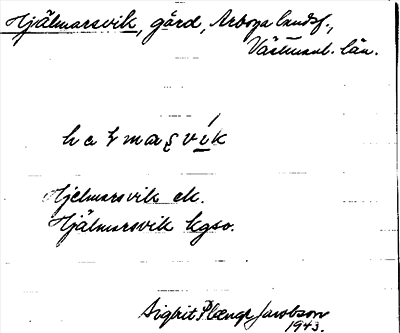 Hjälmarsvik, gård, Arboga landsf.,
Västmanl. län.
Hjelmarsvik ek.
Hjälmarsvik kgso.
Sigfrit Jacobson
1943.